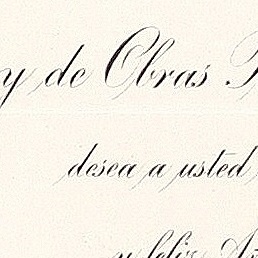 y de Obras
desea a usted
y feliz